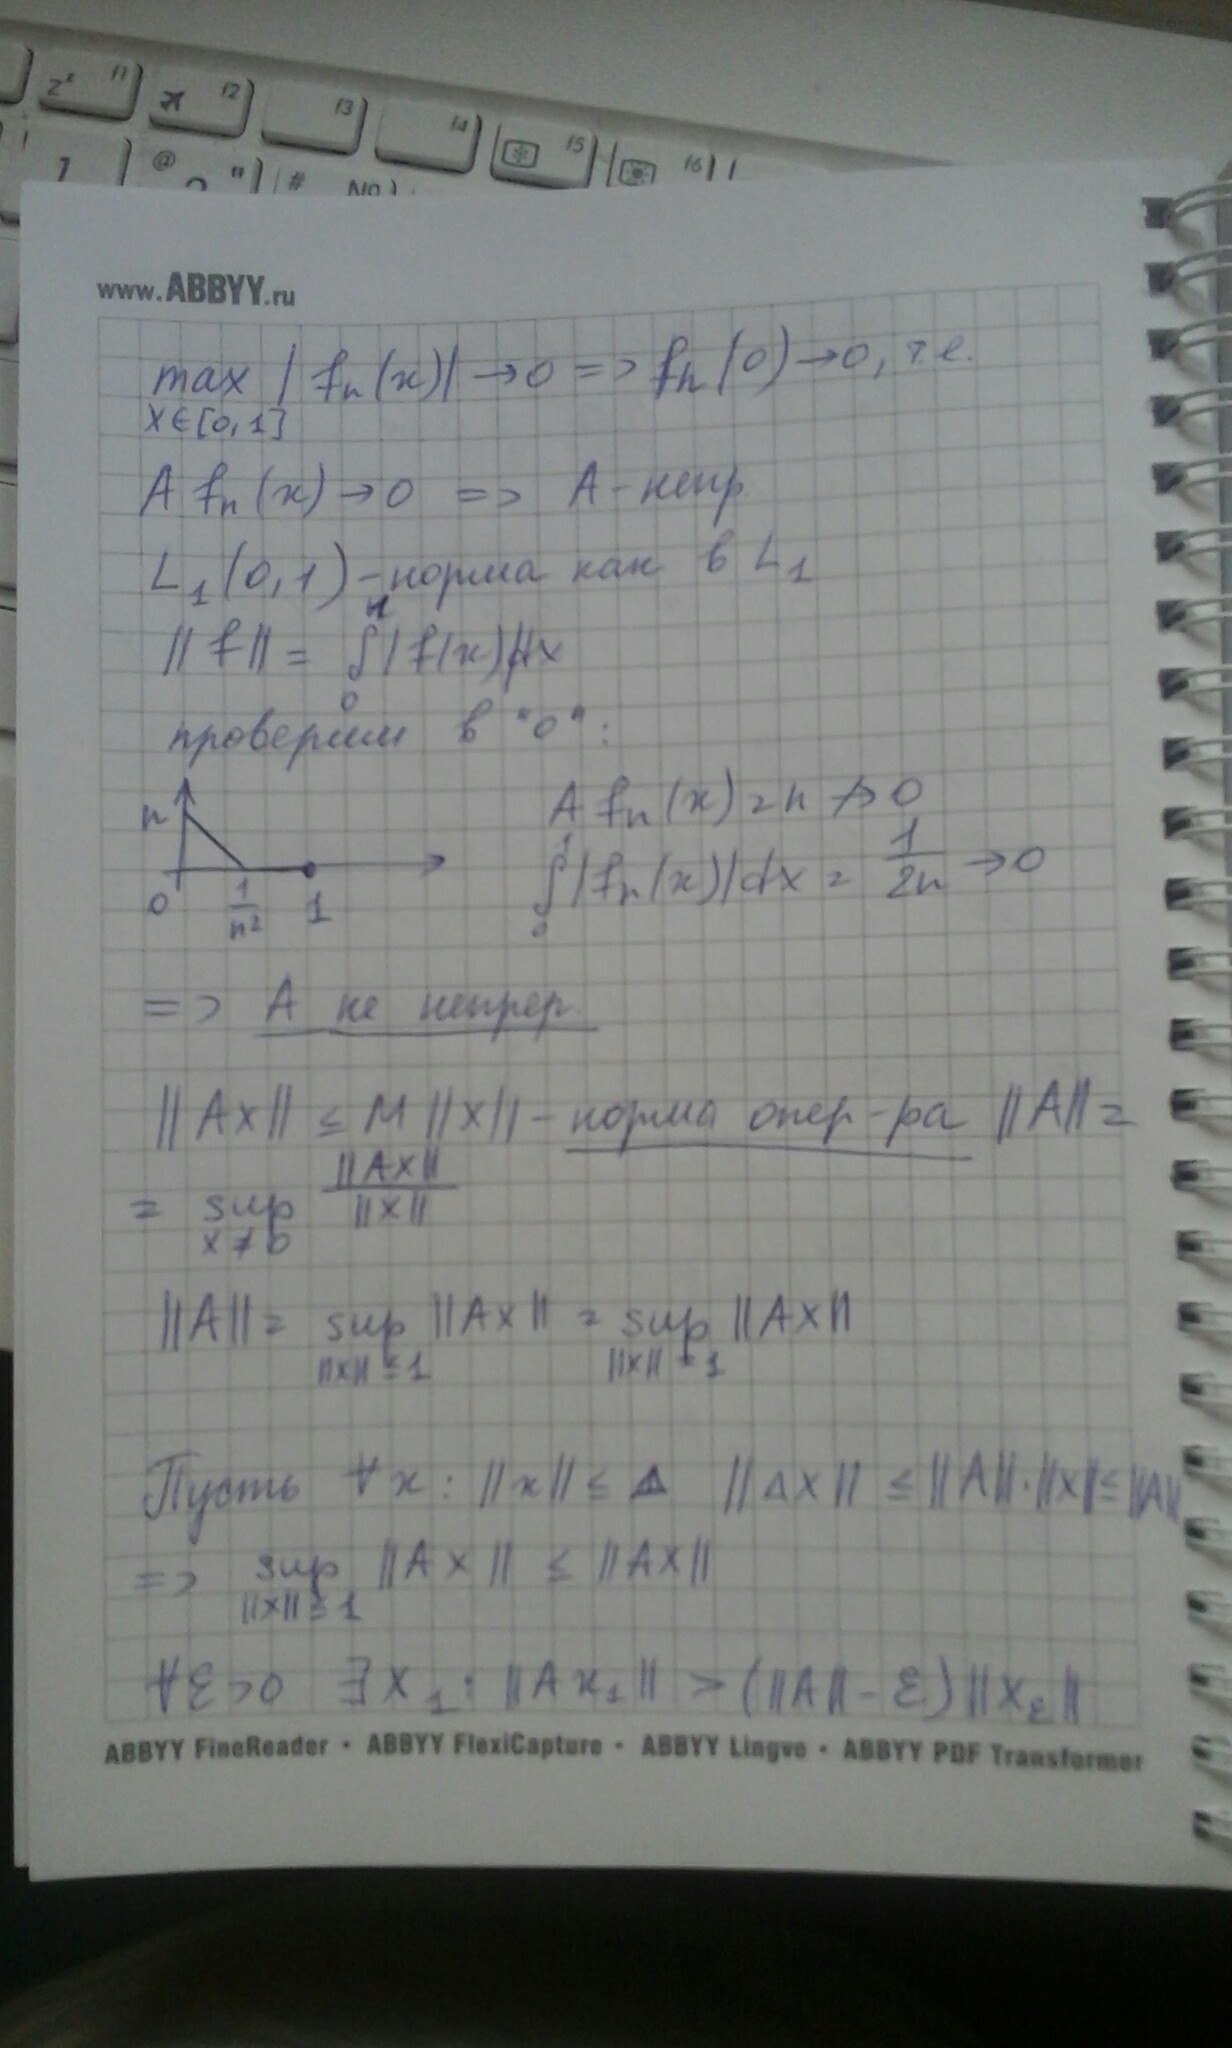 z² f1 f2 f3 f4 f5 f6
1 @ " # №
www.ABBYY.ru
max | fn(x)| → 0 => fn(0) → 0, т.е.
x∈[0,1]
A fn(x) → 0 => A - непр
L₁(0,1) - норма как в L₁
||f|| = ∫₀¹ |f(x)|dx
проверим в "0":
n A fn(x) = n ↛ 0
0 1/n² 1 ∫₀¹ |fn(x)|dx = 1/2n → 0
=> A не непрер
||Ax|| ≤ M ||x|| - норма опер-ра ||A|| =
= sup ||Ax||/||x||
x ≠ 0
||A|| = sup ||Ax|| = sup ||Ax||
||x|| ≤ 1 ||x|| = 1
Пусть ∀x: ||x|| ≤ 1 ||Ax|| ≤ ||A||·||x|| ≤ ||A||
=> sup ||Ax|| ≤ ||Ax||
||x|| ≤ 1
∀ε>0 ∃x₁: ||Ax₁|| > (||A|| - ε)||xε||
ABBYY FineReader • ABBYY FlexiCapture • ABBYY Lingvo • ABBYY PDF Transformer